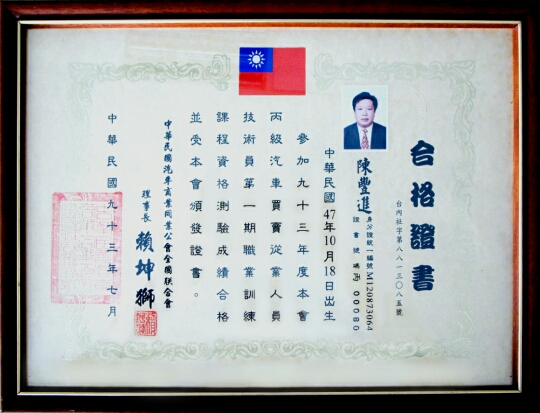 合格證書
台內社字第八八一三〇八五號
陳豐進
身分證統一編號M120873064
證書號碼丙00080
中華民國47年10月18日出生
參加九十三年度本會
丙級汽車買賣從業人員
技術員第一期職業訓練
課程資格測驗成績合格
並受本會頒發證書。
中華民國汽車商業同業公會全國聯合會
理事長 賴坤獅
中華民國九十三年七月